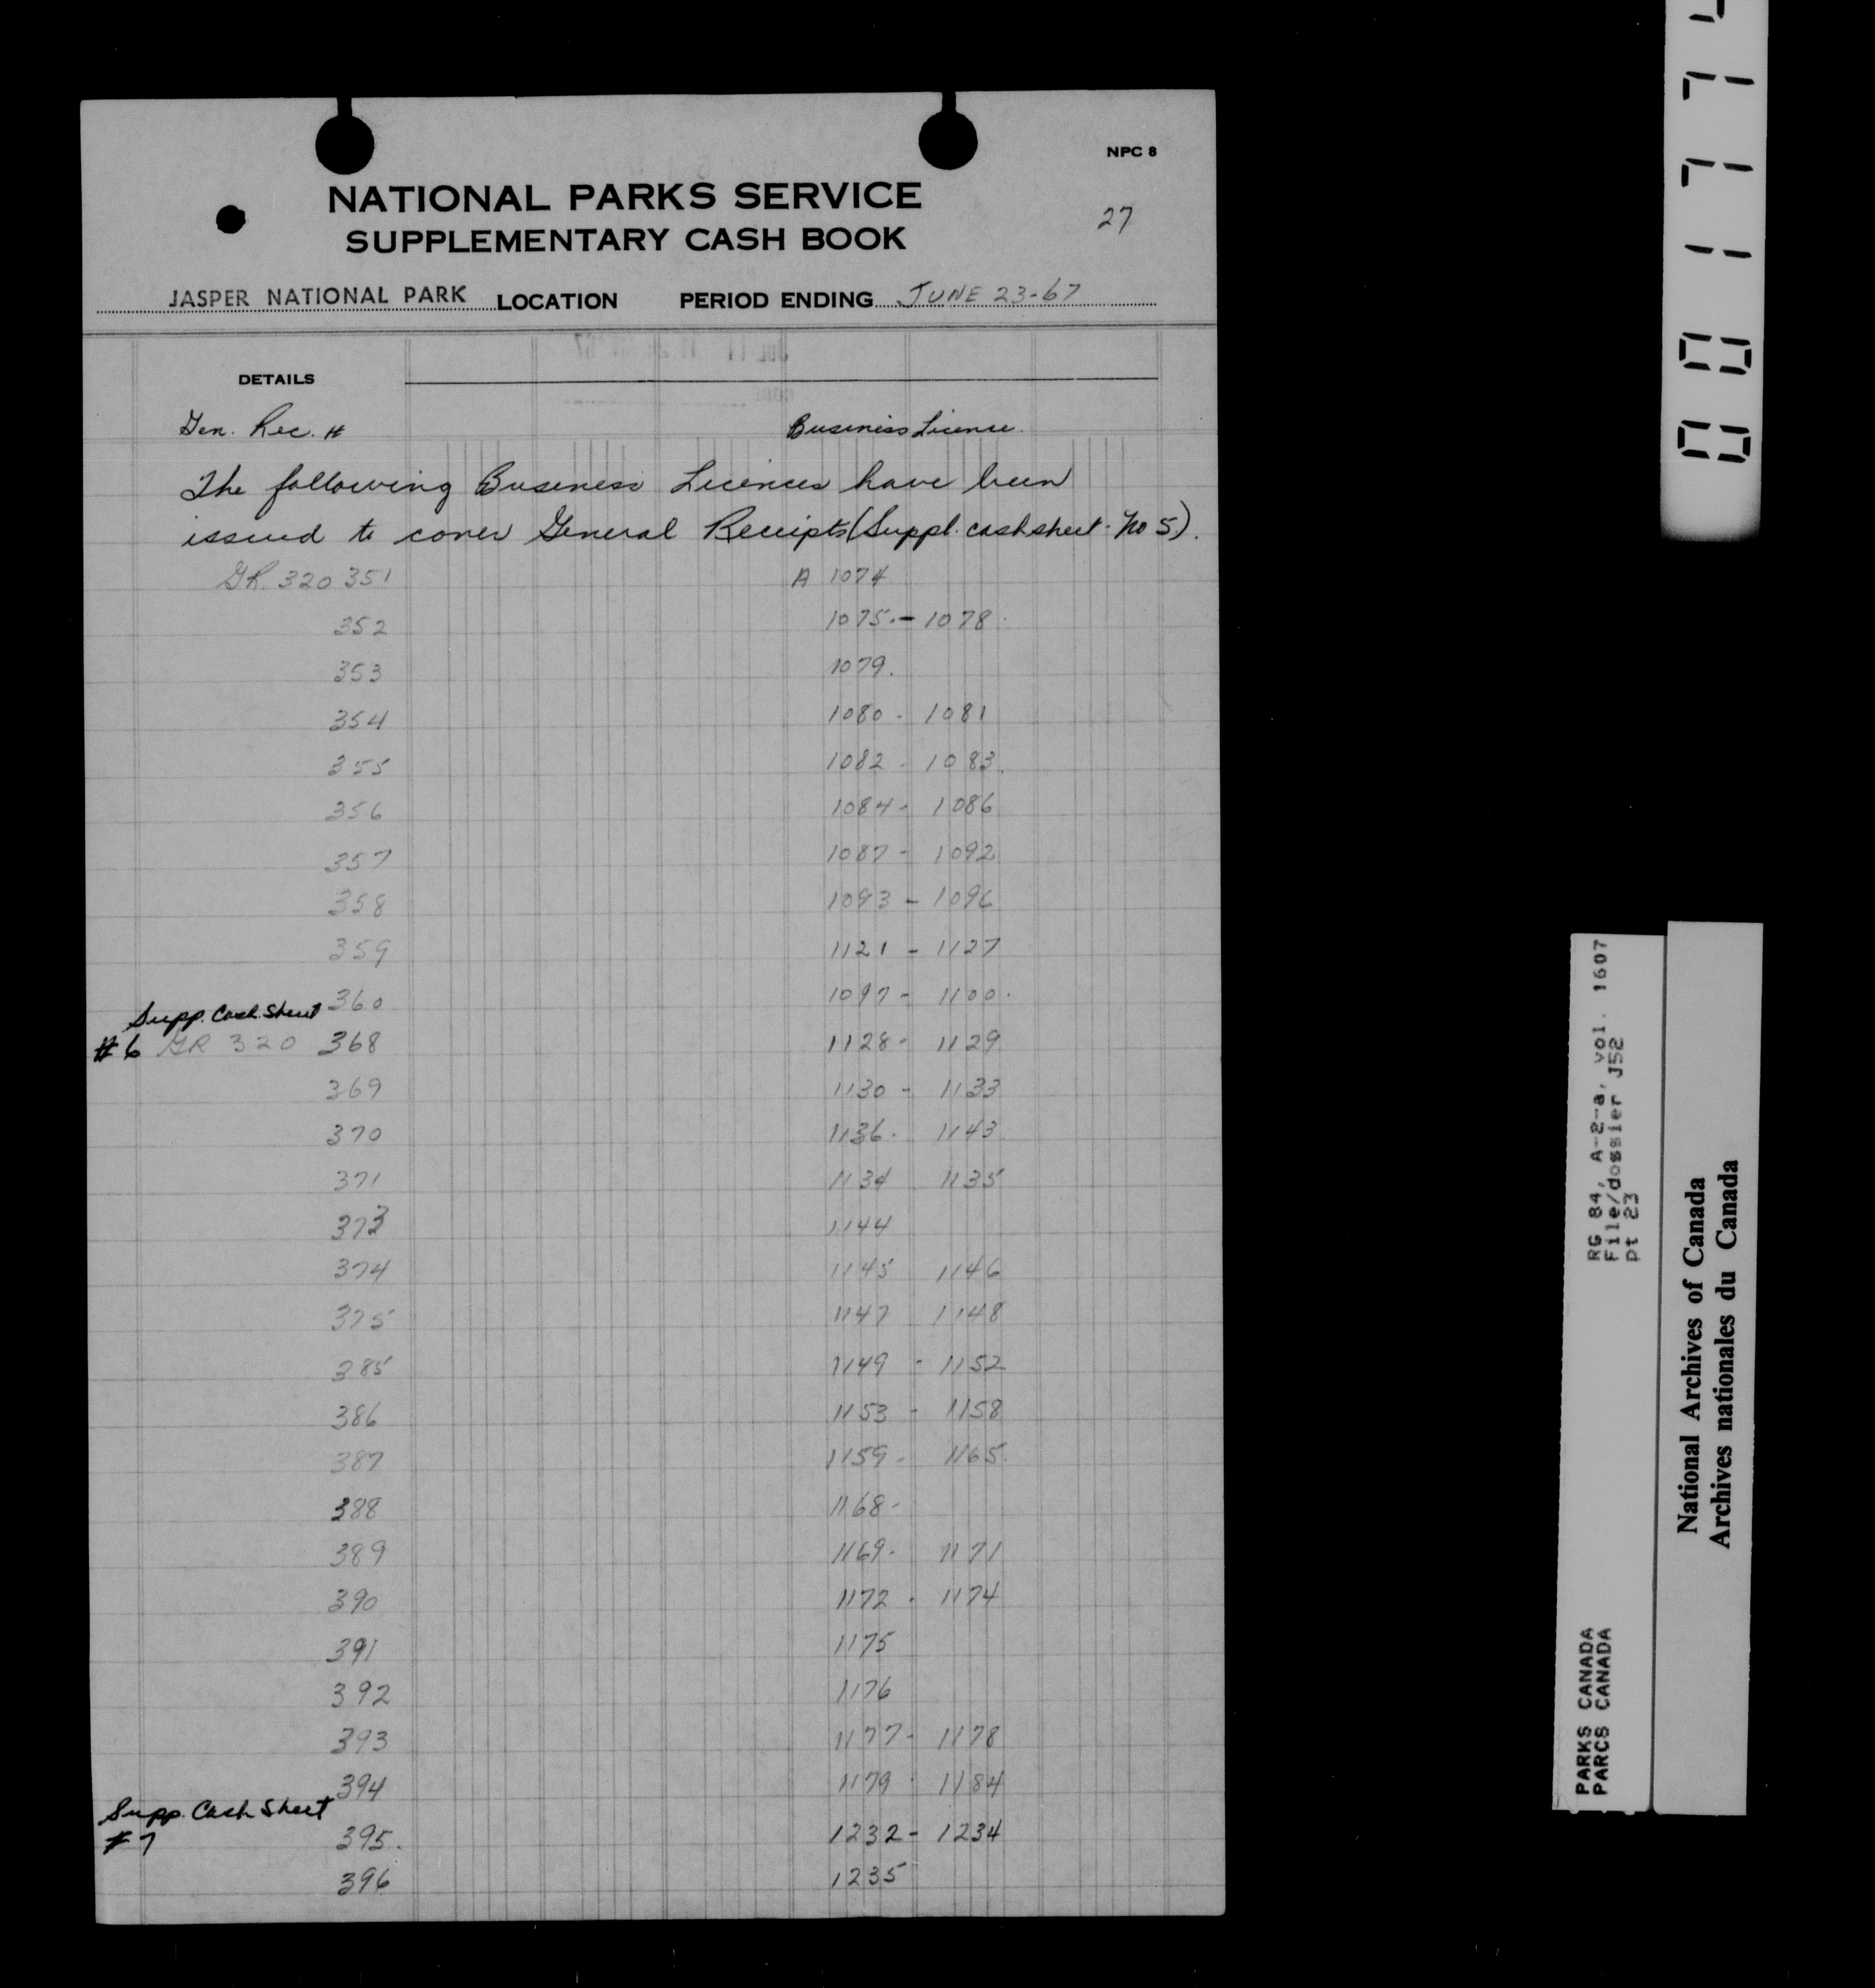 NPC 8
NATIONAL PARKS SERVICE
27
SUPPLEMENTARY CASH BOOK
JASPER NATIONAL PARK LOCATION PERIOD ENDING JUNE 23-67
DETAILS
Gen. Rec. # Business Licence.
The following Business Licences have been
issued to cover General Receipts (Suppl. cash sheet No 5).
GR. 320 351 A 1074
352 1075.- 1078.
353 1079.
354 1080 - 1081
355 1082 - 1083.
356 1084 - 1086
357 1087 - 1092
358 1093 - 1096
359 1121 - 1127
360 1097 - 1100.
Supp. Cash Sheet
#6 GR 320 368 1128 - 1129
369 1130 - 1133
370 1136 - 1143
371 1134 1135
373 1144
374 1145 1146
375 1147 1148
385 1149 - 1152
386 1153 - 1158
387 1159 - 1165.
388 1168 -
389 1169 - 1171
390 1172 - 1174
391 1175
392 1176
393 1177 - 1178
394 1179 - 1184
Supp. Cash Sheet
#7 395. 1232 - 1234
396 1235
RG 84, A-2-a, vol. 1607
File/dossier J52
pt 23
PARKS CANADA
PARCS CANADA
National Archives of Canada
Archives nationales du Canada